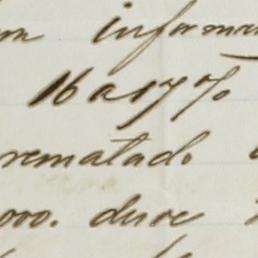 m informa
16 a 17 %
rematado
000. duve